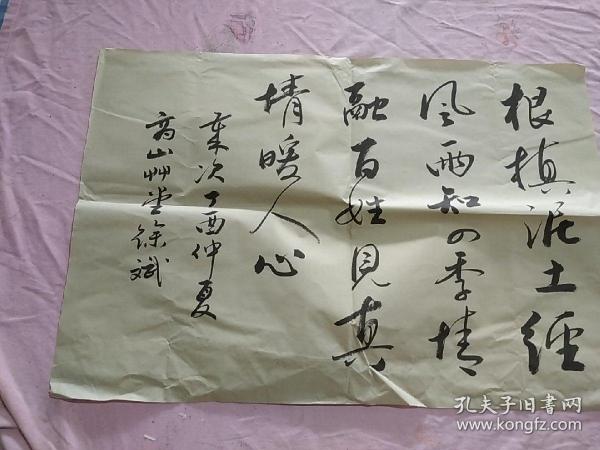 根植泥土經
风雨知四季情
融百姓見真
情暖人心
歲次丁酉仲夏
高山艸堂徐斌
孔夫子旧书网
www.kongfz.com